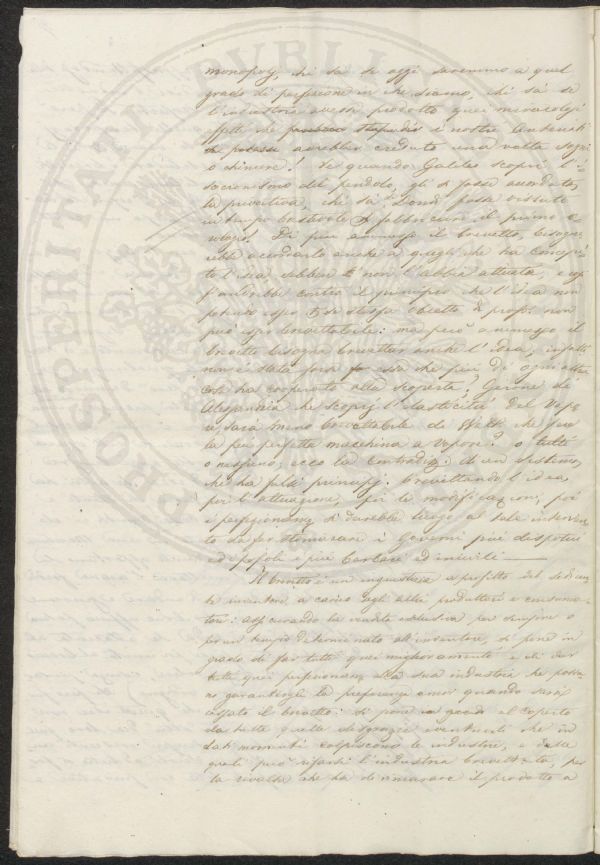 monopoly, chi sà se oggi saremmo a quel
grado di perfezione in che siamo, chi sà se
l'industria avesse prodotto quei meravigliosi
effetti che i nostri Antenati
avrebber creduto una volta sogni
o chimere! Se quando Galileo scoprì l'i=
socronismo del pendolo, gli si fosse accordata
la privativa, chi sà se fosse vissuto
in tempo fabbricare il primo o=
rologio! Di più ammesso il brevetto, bisogne=
rebbe accordarlo anche a quegli che ha concepi=
to l'idea sebben non l'abbia attuata, e ciò
contro il principio che l'idea non
potendo esser per se stessa obietto di propr. non
può esser brevettabile: ma però ammesso il
brevetto bisogna brevettar anche l'idea, infatti
non è stata forse essa che più di ogni altra
cosa ha cooperato alla scoperta? Gerone di
Alessandria che scoprì l'elasticità del vapo=
re sarà meno brevettabile di Watt che fece
la più perfetta macchina a vapore? o tutti
o nessuno, ecco la contradiz. di un sistema
che ha falsi principj. Brevettando l'idea
per l'attuazione, per le modificazioni, poi
i perfezionam. si darebbe luogo al tale interven=
to da far i Governi più despotici
ed i popoli i più barbari ed incivili —
Il brevetto è un ingiustizia a profitto del sedicen=
te inventore a carico degli altri produttori e consuma=
tori: assicurando la vendita esclusiva per sempre o
per un tempo determinato all'inventore, si pone in
grado di far tutti quei miglioramenti e di dar
tutti quei perfezionam. alla sua industria che posso=
no garantirgli la preferenza ancor quando sarà
cessato il brevetto: si pone in grado al coperto
da tutte quelle disgrazie eventuali che in
dati momenti colpiscono le industrie, e dalle
quali può rifarsi l'industria brevettata, per
la rivalsa che ha di rincarare il prodotto a
PROSPERITATI PVBLICAE